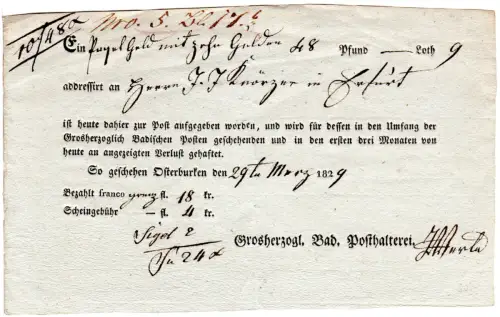 10/48 x
No. 5. Bl 17.
Ein Paquet Geld mit zehn Gulden 48 Pfund — Loth 9
addressirt an Herrn J. J. Knörzer in Erfurt
ist heute dahier zur Post aufgegeben worden, und wird für dessen in den Umfang der
Grosherzoglich Badischen Posten geschehenden und in den ersten drei Monaten von
heute an angezeigten Verlust gehaftet.
So geschehen Osterburken den 29ten Merz 1829
Bezahlt franco grenz fl. 18 kr.
Scheingebühr — fl. 4 kr.
Sigel 2
24 x
Grosherzogl. Bad. Posthalterei